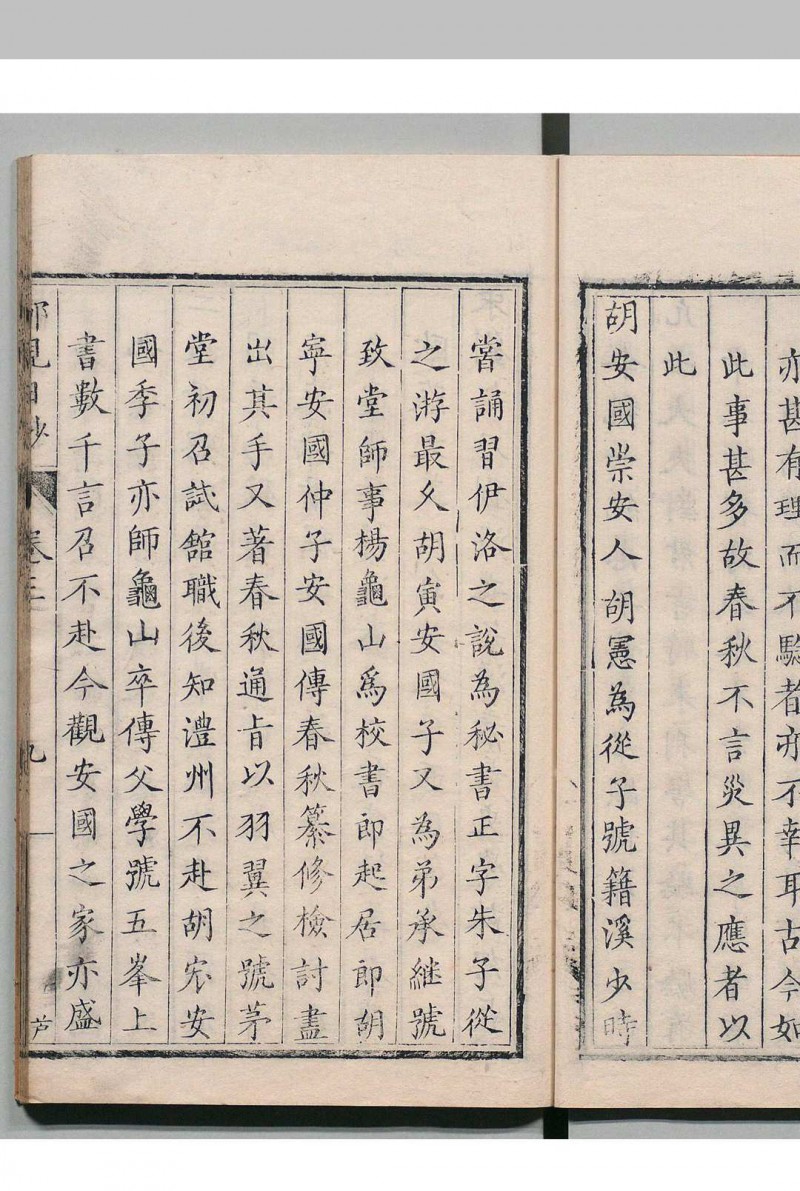 亦甚有理而不驗者亦不幸耳古今如
此事甚多故春秋不言災異之應者以
此
胡安國崇安人胡憲為從子號籍溪少時
嘗誦習伊洛之說為秘書正字朱子從
之游最久胡寅安國子又為弟承継號
致堂師事楊龜山爲校書郎起居郎胡
寧安國仲子安國傳春秋纂修檢討盡
出其手又著春秋通旨以羽翼之號茅
堂初召試舘職後知澧州不赴胡宏安
國季子亦師龜山卒傳父學號五峯上
書數千言召不赴今觀安國之家亦盛
見日抄 卷三 九